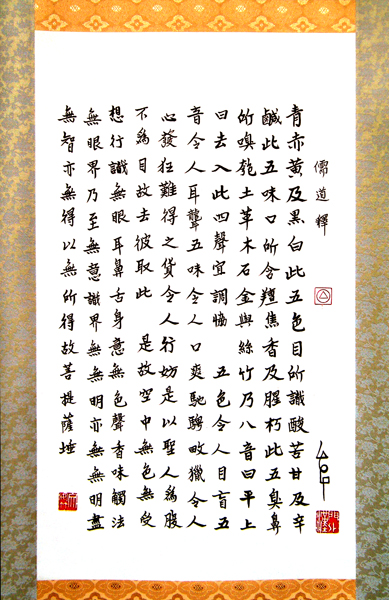 儒道釋
青赤黃及黑白此五色目所識酸苦甘及辛
鹹此五味口所含羶焦香及腥朽此五臭鼻
所嗅匏土革木石金與絲竹乃八音曰平上
曰去入此四聲宜調協 五色令人目盲五
音令人耳聾五味令人口爽馳騁畋獵令人
心發狂難得之貨令人行妨是以聖人為腹
不為目故去彼取此 是故空中無色無受
想行識無眼耳鼻舌身意無色聲香味觸法
無眼界乃至無意識界無無明亦無無明盡
無智亦無得以無所得故菩提薩埵